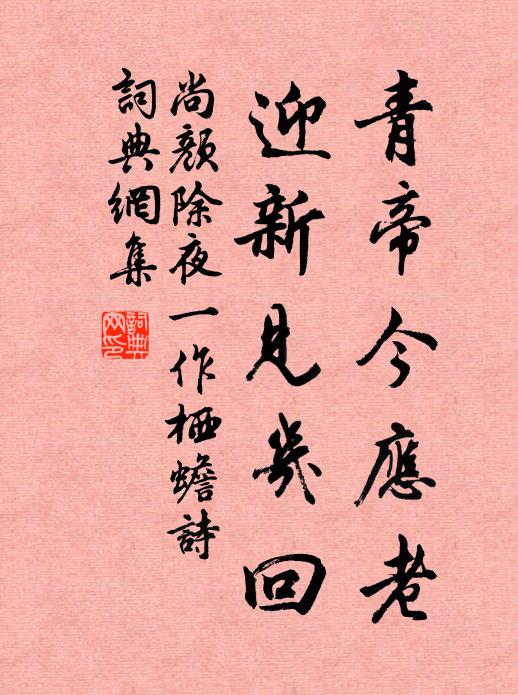 青帝今應老
迎新見幾回
尚顏除夜一作栖蟾詩
詞典網集
詞典網印